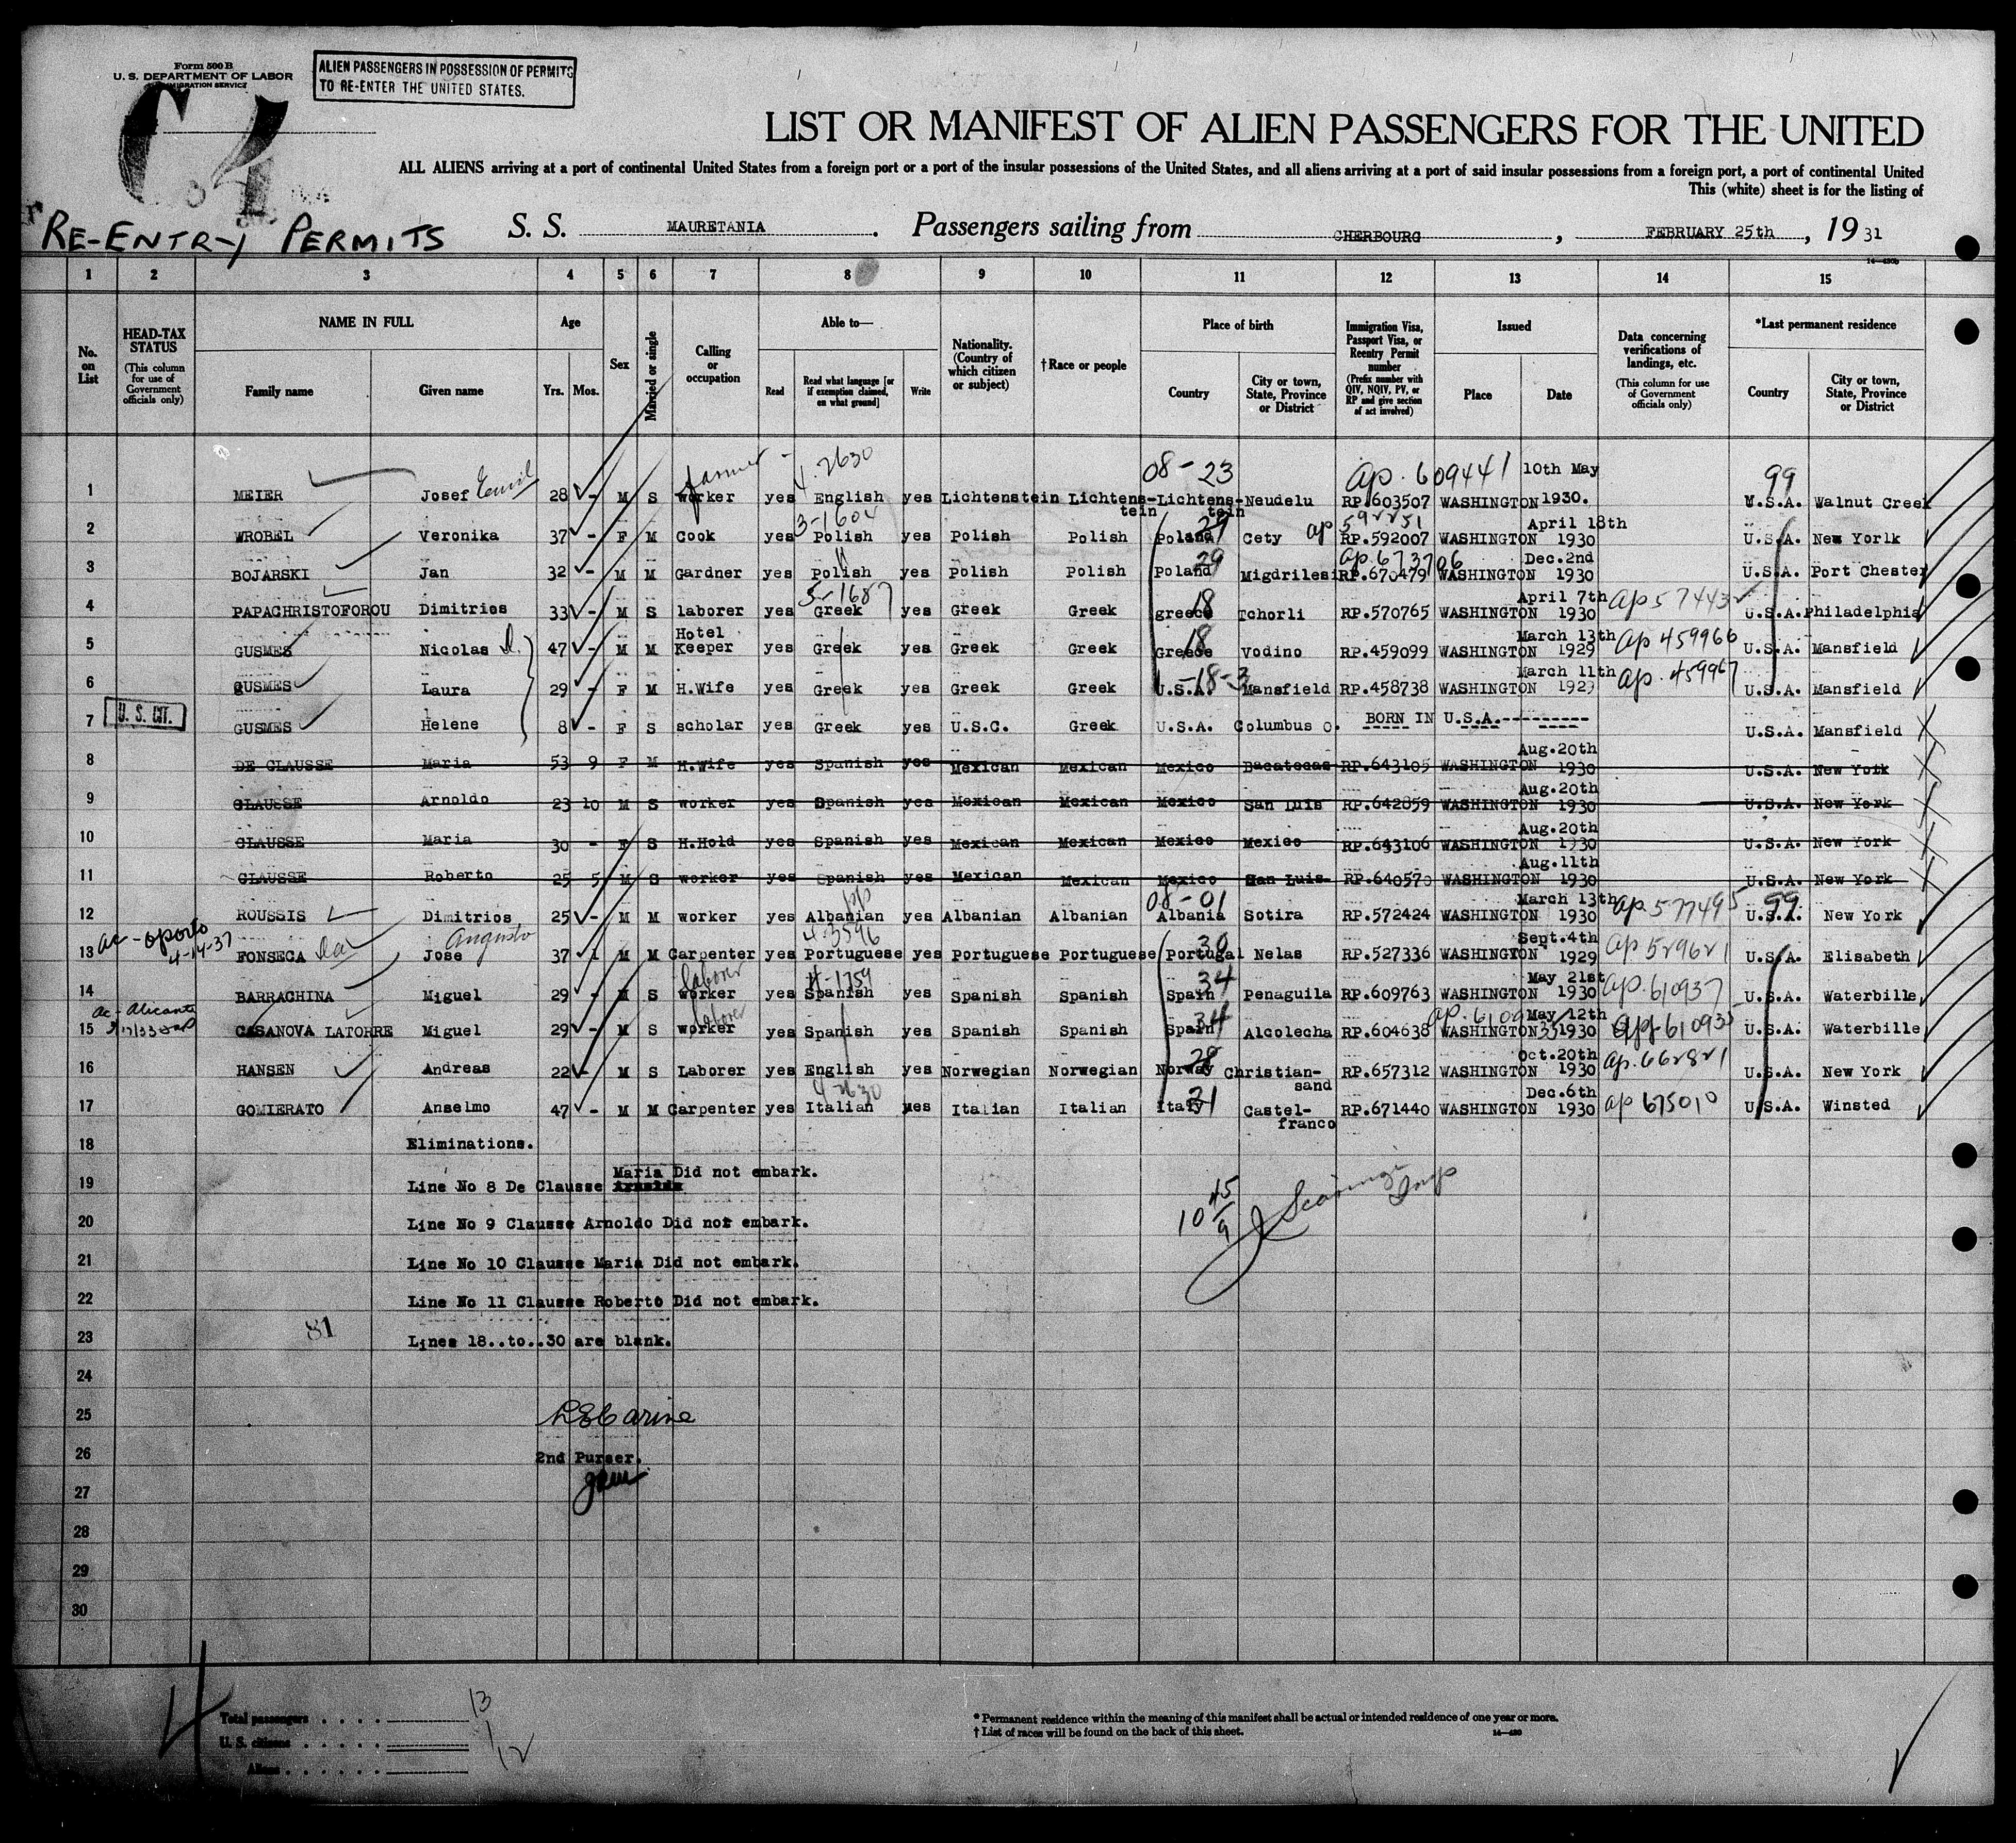 Form 500 B
U. S. DEPARTMENT OF LABOR
IMMIGRATION SERVICE
ALIEN PASSENGERS IN POSSESSION OF PERMITS
TO RE-ENTER THE UNITED STATES.
LIST OR MANIFEST OF ALIEN PASSENGERS FOR THE UNITED
ALL ALIENS arriving at a port of continental United States from a foreign port or a port of the insular possessions of the United States, and all aliens arriving at a port of said insular possessions from a foreign port, a port of continental United
This (white) sheet is for the listing of
RE-ENTRY PERMITS
S. S. MAURETANIA . Passengers sailing from CHERBOURG , FEBRUARY 25th , 19 31
1 2 3 4 5 6 7 8 9 10 11 12 13 14 15
No. on List
HEAD-TAX STATUS (This column for use of Government officials only)
NAME IN FULL
Family name
Given name
Age
Yrs. Mos.
Sex
Married or single
Calling or occupation
Able to—
Read
Read what language [or if exemption claimed, on what ground]
Write
Nationality. (Country of which citizen or subject)
†Race or people
Place of birth
Country
City or town, State, Province or District
Immigration Visa, Passport Visa, or Reentry Permit number (Prefix number with QIV, NQIV, PV, or RP and give section of act involved)
Issued
Place
Date
Data concerning verifications of landings, etc. (This column for use of Government officials only)
*Last permanent residence
Country
City or town, State, Province or District
farmer 4-2630 08-23 ap. 609441 10th May 99
1 MEIER Josef Emil 28 - M S worker yes English yes Lichtenstein Lichtens-tein Lichtens-tein Neudelu RP.603507 WASHINGTON 1930. U.S.A. Walnut Creek
3-1604 29 ap 592251 April 18th
2 WROBEL Veronika 37 - F M Cook yes Polish yes Polish Polish Poland Cety RP.592007 WASHINGTON 1930 U.S.A. New Yorlk
29 ap. 673706 Dec.2nd
3 BOJARSKI Jan 32 - M M Gardner yes Polish yes Polish Polish Poland Migdrilesi RP.670479 WASHINGTON 1930 U.S.A. Port Chester
3-1687 18 April 7th ap 57443
4 PAPACHRISTOFOROU Dimitrios 33 - M S laborer yes Greek yes Greek Greek greece Tchorli RP.570765 WASHINGTON 1930 U.S.A. Philadelphia
Hotel 18 March 13th ap 459966
5 GUSMES Nicolas D. 47 - M M Keeper yes Greek yes Greek Greek Greece Vodino RP.459099 WASHINGTON 1929 U.S.A. Mansfield
-18-3 March 11th ap. 459967
6 GUSMES Laura 29 - F M H.Wife yes Greek yes Greek Greek U.S.A. Mansfield RP.458738 WASHINGTON 1929 U.S.A. Mansfield
U. S. CIT.
7 GUSMES Helene 8 - F S scholar yes Greek yes U.S.C. Greek U.S.A. Columbus O. BORN IN U.S.A.---------- U.S.A. Mansfield
Aug.20th
8 DE CLAUSSE Maria 53 9 F M H.Wife yes Spanish yes Mexican Mexican Mexico Bacatecas RP.643105 WASHINGTON 1930 U.S.A. New York
Aug.20th
9 CLAUSSE Arnoldo 23 10 M S worker yes Spanish yes Mexican Mexican Mexico San Luis RP.642859 WASHINGTON 1930 U.S.A. New York
Aug.20th
10 CLAUSSE Maria 30 - F S H.Hold yes Spanish yes Mexican Mexican Mexico Mexico RP.643106 WASHINGTON 1930 U.S.A. New York
Aug.11th
11 CLAUSSE Roberto 25 5 M S worker yes Spanish yes Mexican Mexican Mexico San Luis RP.640570 WASHINGTON 1930 U.S.A. New York
pp 08-01 March 13th ap. 577495 99
12 ROUSSIS Dimitrios 25 - M M worker yes Albanian yes Albanian Albanian Albania Sotira RP.572424 WASHINGTON 1930 U.S.A. New York
ac - oporto 4-14-37 Augusto 4-3596 30 Sept.4th ap 529621
13 FONSECA Jose 37 1 M M Carpenter yes Portuguese yes Portuguese Portuguese Portugal Nelas RP.527336 WASHINGTON 1929 U.S.A. Elisabeth
laborer 4-1759 34 May 21st ap. 610937
14 BARRACHINA Miguel 29 - M S worker yes Spanish yes Spanish Spanish Spain Penaguila RP.609763 WASHINGTON 1930 U.S.A. Waterbille
ac - Alicante laborer 34 May 12th ap. 610935
15 CASANOVA LATORRE Miguel 29 - M S worker yes Spanish yes Spanish Spanish Spain Alcolecha RP.604638 WASHINGTON 1930 U.S.A. Waterbille
28 Oct.20th ap. 662821
16 HANSEN Andreas 22 - M S Laborer yes English yes Norwegian Norwegian Norway Christian-sand RP.657312 WASHINGTON 1930 U.S.A. New York
4-2630 21 Dec.6th ap 675010
17 GOMIERATO Anselmo 47 - M M Carpenter yes Italian yes Italian Italian Italy Castel-franco RP.671440 WASHINGTON 1930 U.S.A. Winsted
18 Eliminations.
19 Line No 8 De Clausse Maria Did not embark.
20 Line No 9 Clausse Arnoldo Did not embark.
21 Line No 10 Clausse Maria Did not embark.
22 Line No 11 Clausse Roberto Did not embark.
81
23 Lines 18..to..30 are blank.
24
25
26 2nd Purser.
27
28
29
30
Total passengers . . . . 13
U. S. citizens . . . . . 1
Aliens . . . . . . 12
* Permanent residence within the meaning of this manifest shall be actual or intended residence of one year or more.
† List of races will be found on the back of this sheet.
14—430